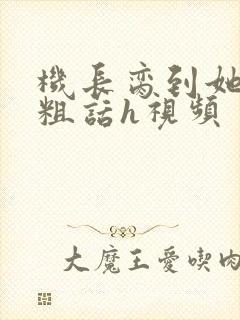 機長脔到她
粗話h視頻
大魔王愛喫肉